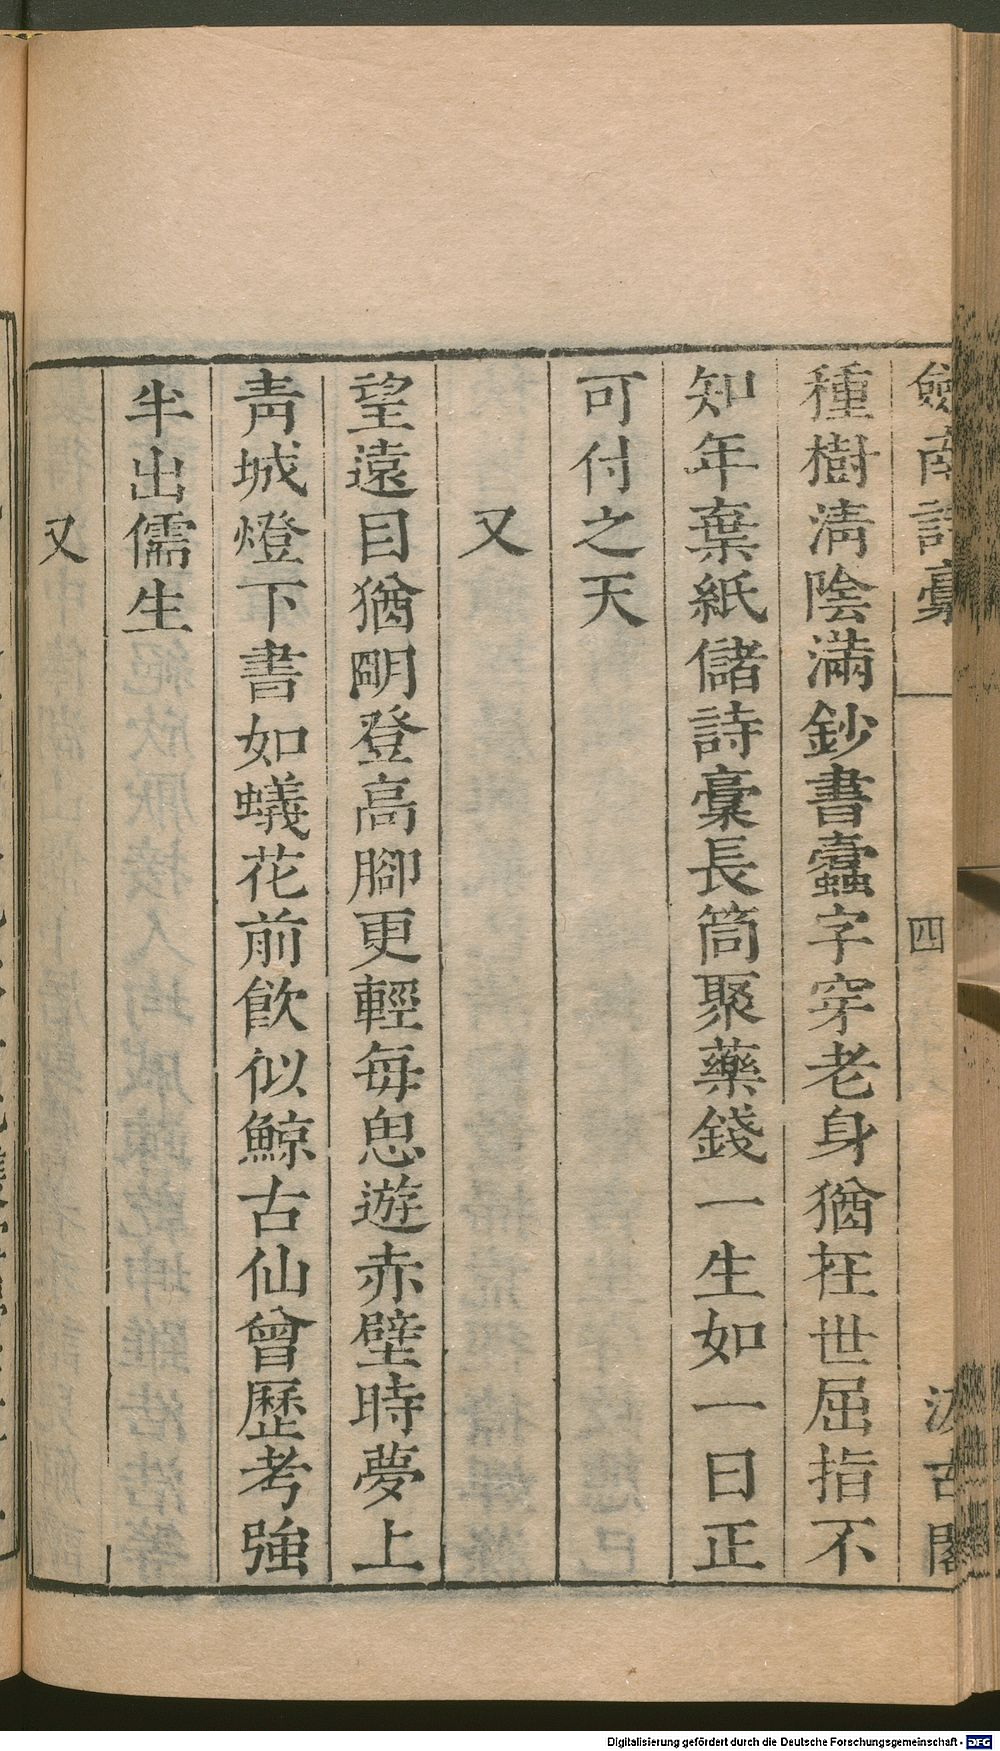 劒南詩稾
四
汲古閣
種樹淸陰滿鈔書蠹字穿老身猶在世屈指不
知年棄紙儲詩稾長筒聚藥錢一生如一日正
可付之天
又
望遠目猶明登高腳更輕每思遊赤壁時夢上
靑城燈下書如蟻花前飮似鯨古仙曾歷考強
半出儒生
又
Digitalisierung gefördert durch die Deutsche Forschungsgemeinschaft - DFG